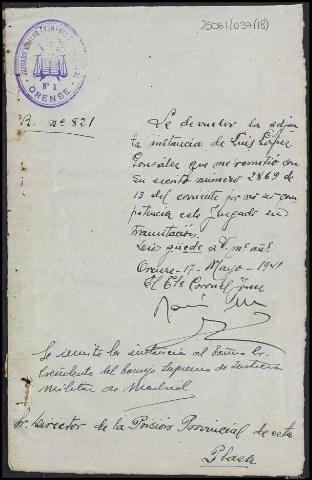 25061/037(18)
JUZGADO MILITAR EVENTUAL
Nº 1
ORENSE
R. nº 821
Se devuelve la adjun
ta instancia de Luis López
González que me remitió con
su escrito número 2869 de
13 del corriente por no ser com
petencia este Juzgado su
tramitación.
Dios guarde a V. m. añ.
Orense-17-Mayo-1941
El Tte Coronel Juez
Se remite la instancia al Señor
Presidente del Consejo Supremo de Justicia
Militar de Madrid
Sr. Director de la Prisión Provincial de esta
Plaza